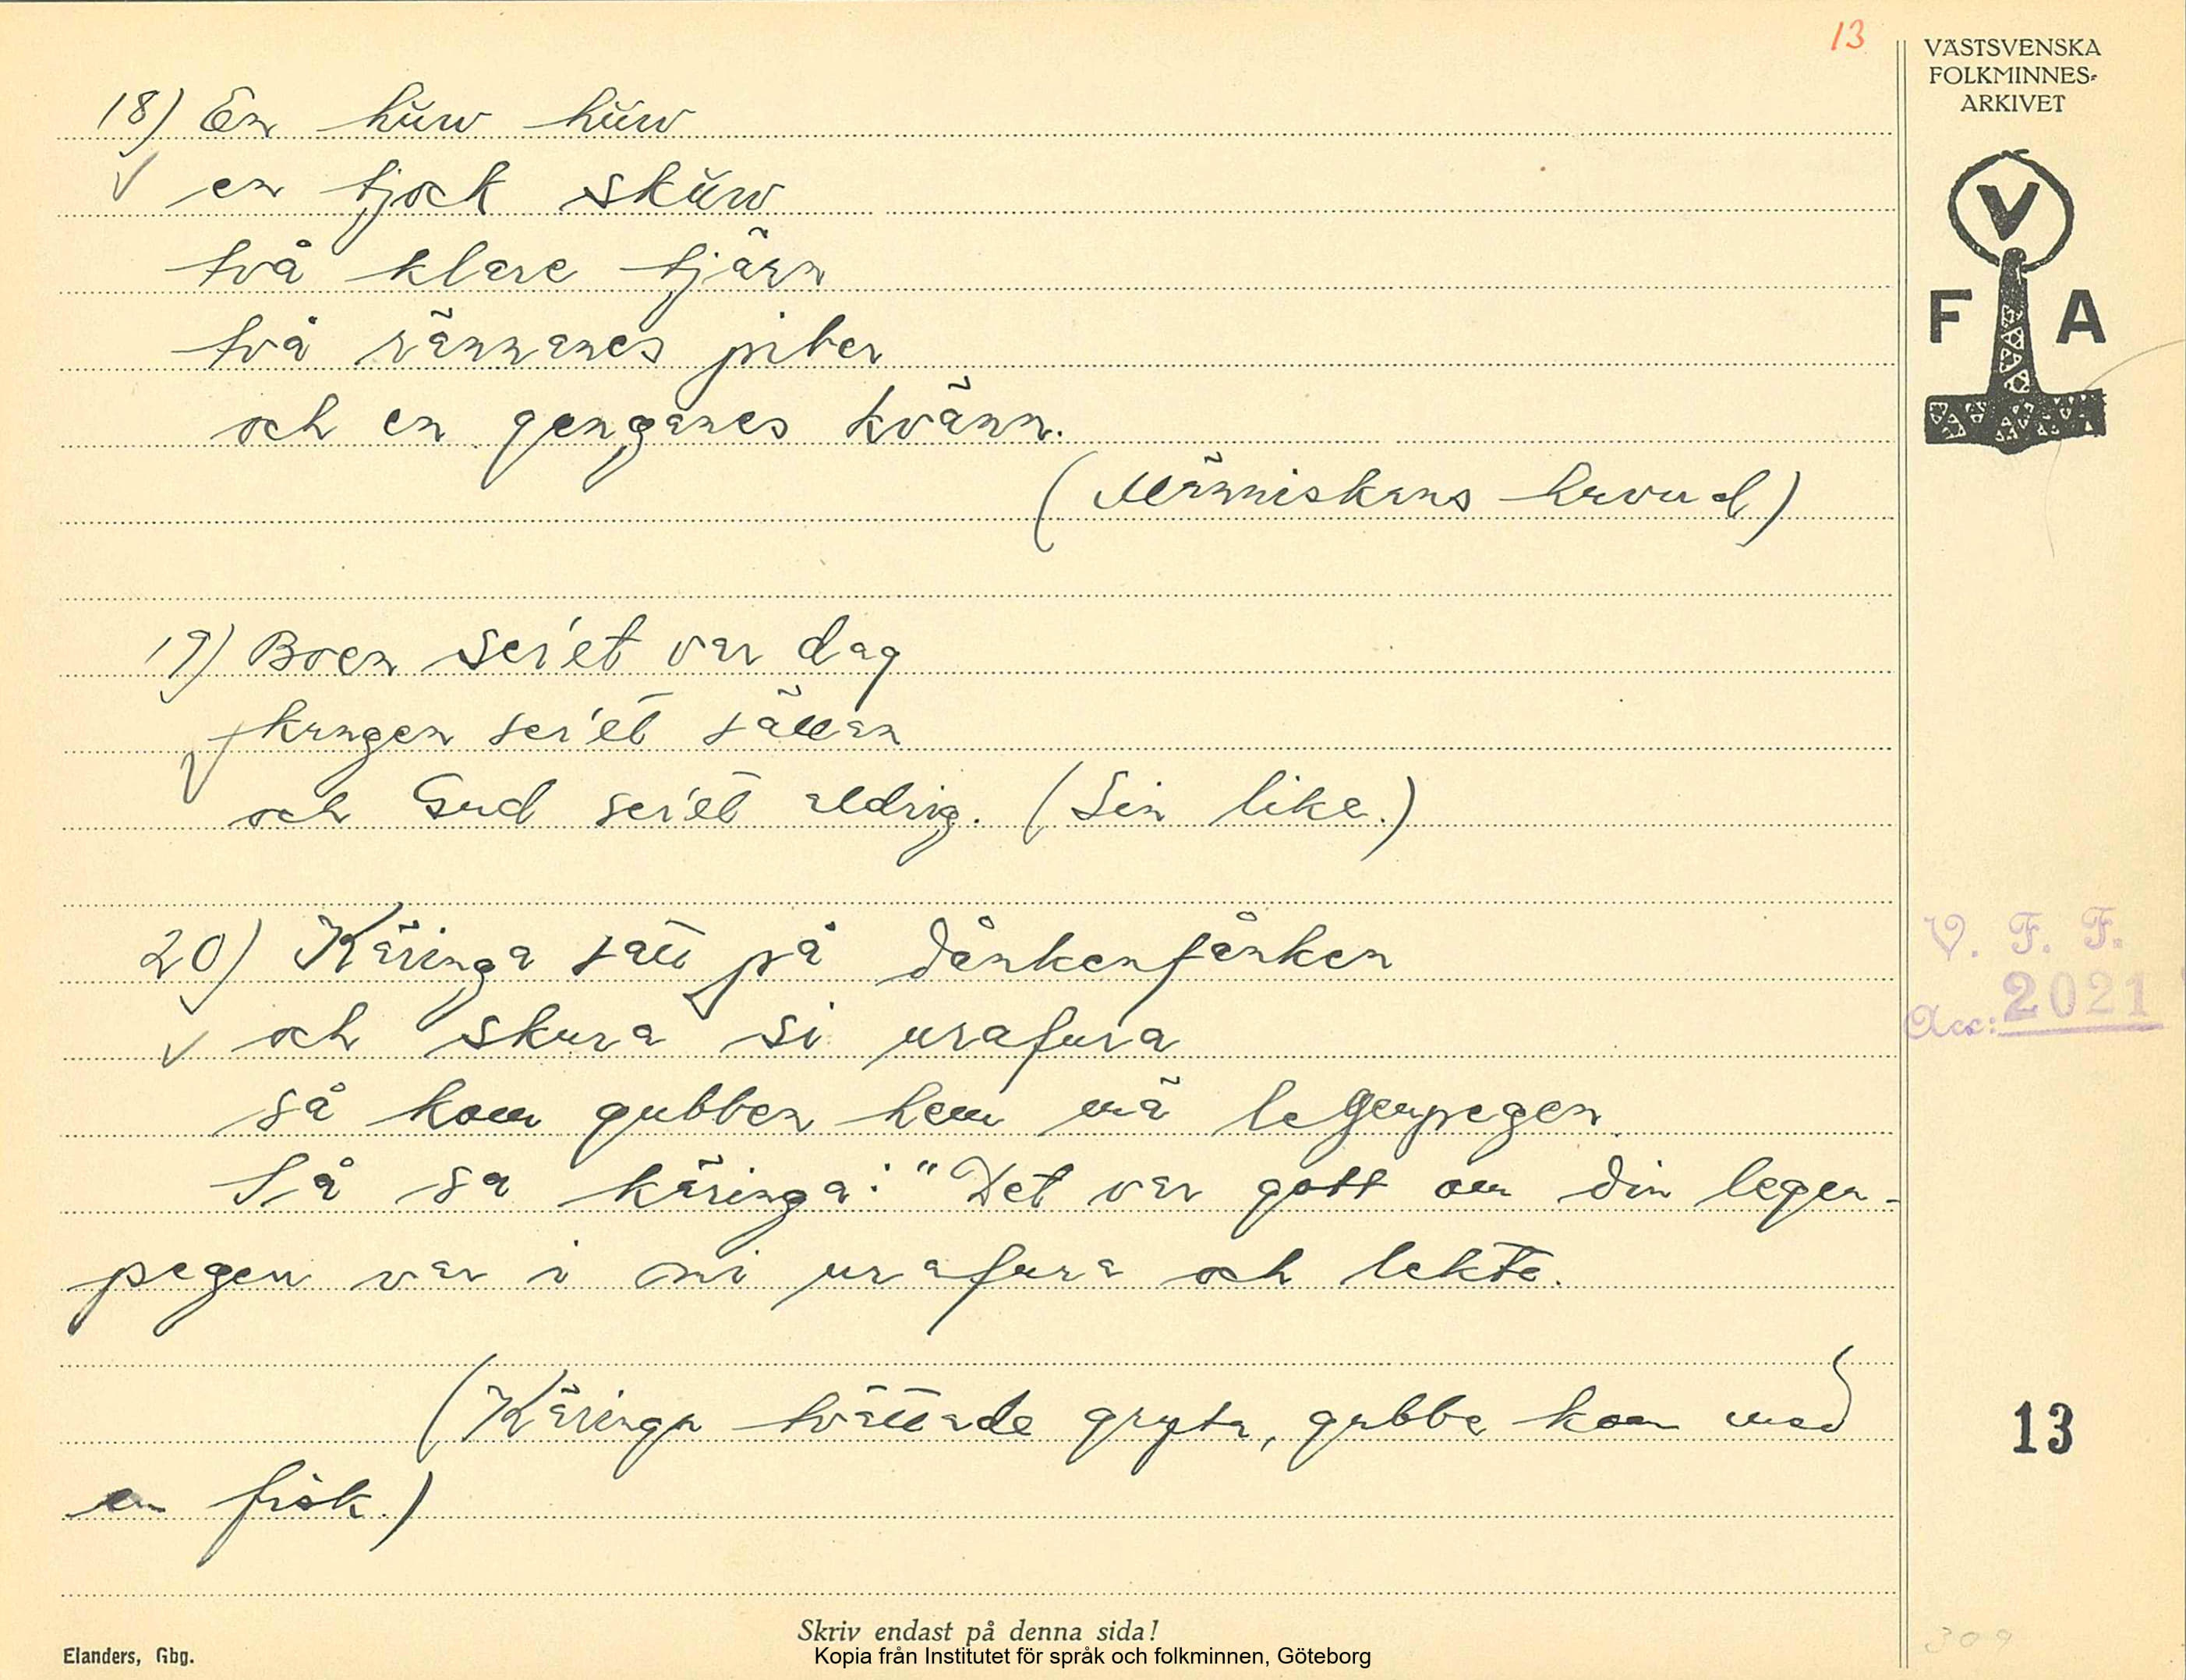 13
VÄSTSVENSKA
FOLKMINNES-
ARKIVET
V
F A
18) En huw huw
en tjock skuw
två klare tjärn
två rännanes piber
och en genganes kvänn.
(Människans huvud)
19) Boen ser'et var dag
kungen ser'et sällan
och Gud ser'et aldrig. (Sin like.)
20) Käringa satt på dånkenfånken
och skura si urafura
så kom gubben hem mä legenpegen
Så sa käringa: "Det var gott om din legen-
pegen var i mi urafura och lekte.
(Käringa tvättade gryta, gubbe kom med
en fisk.)
V. F. F.
Acc: 2021
13
309
Skriv endast på denna sida!
Elanders, Gbg.
Kopia från Institutet för språk och folkminnen, Göteborg